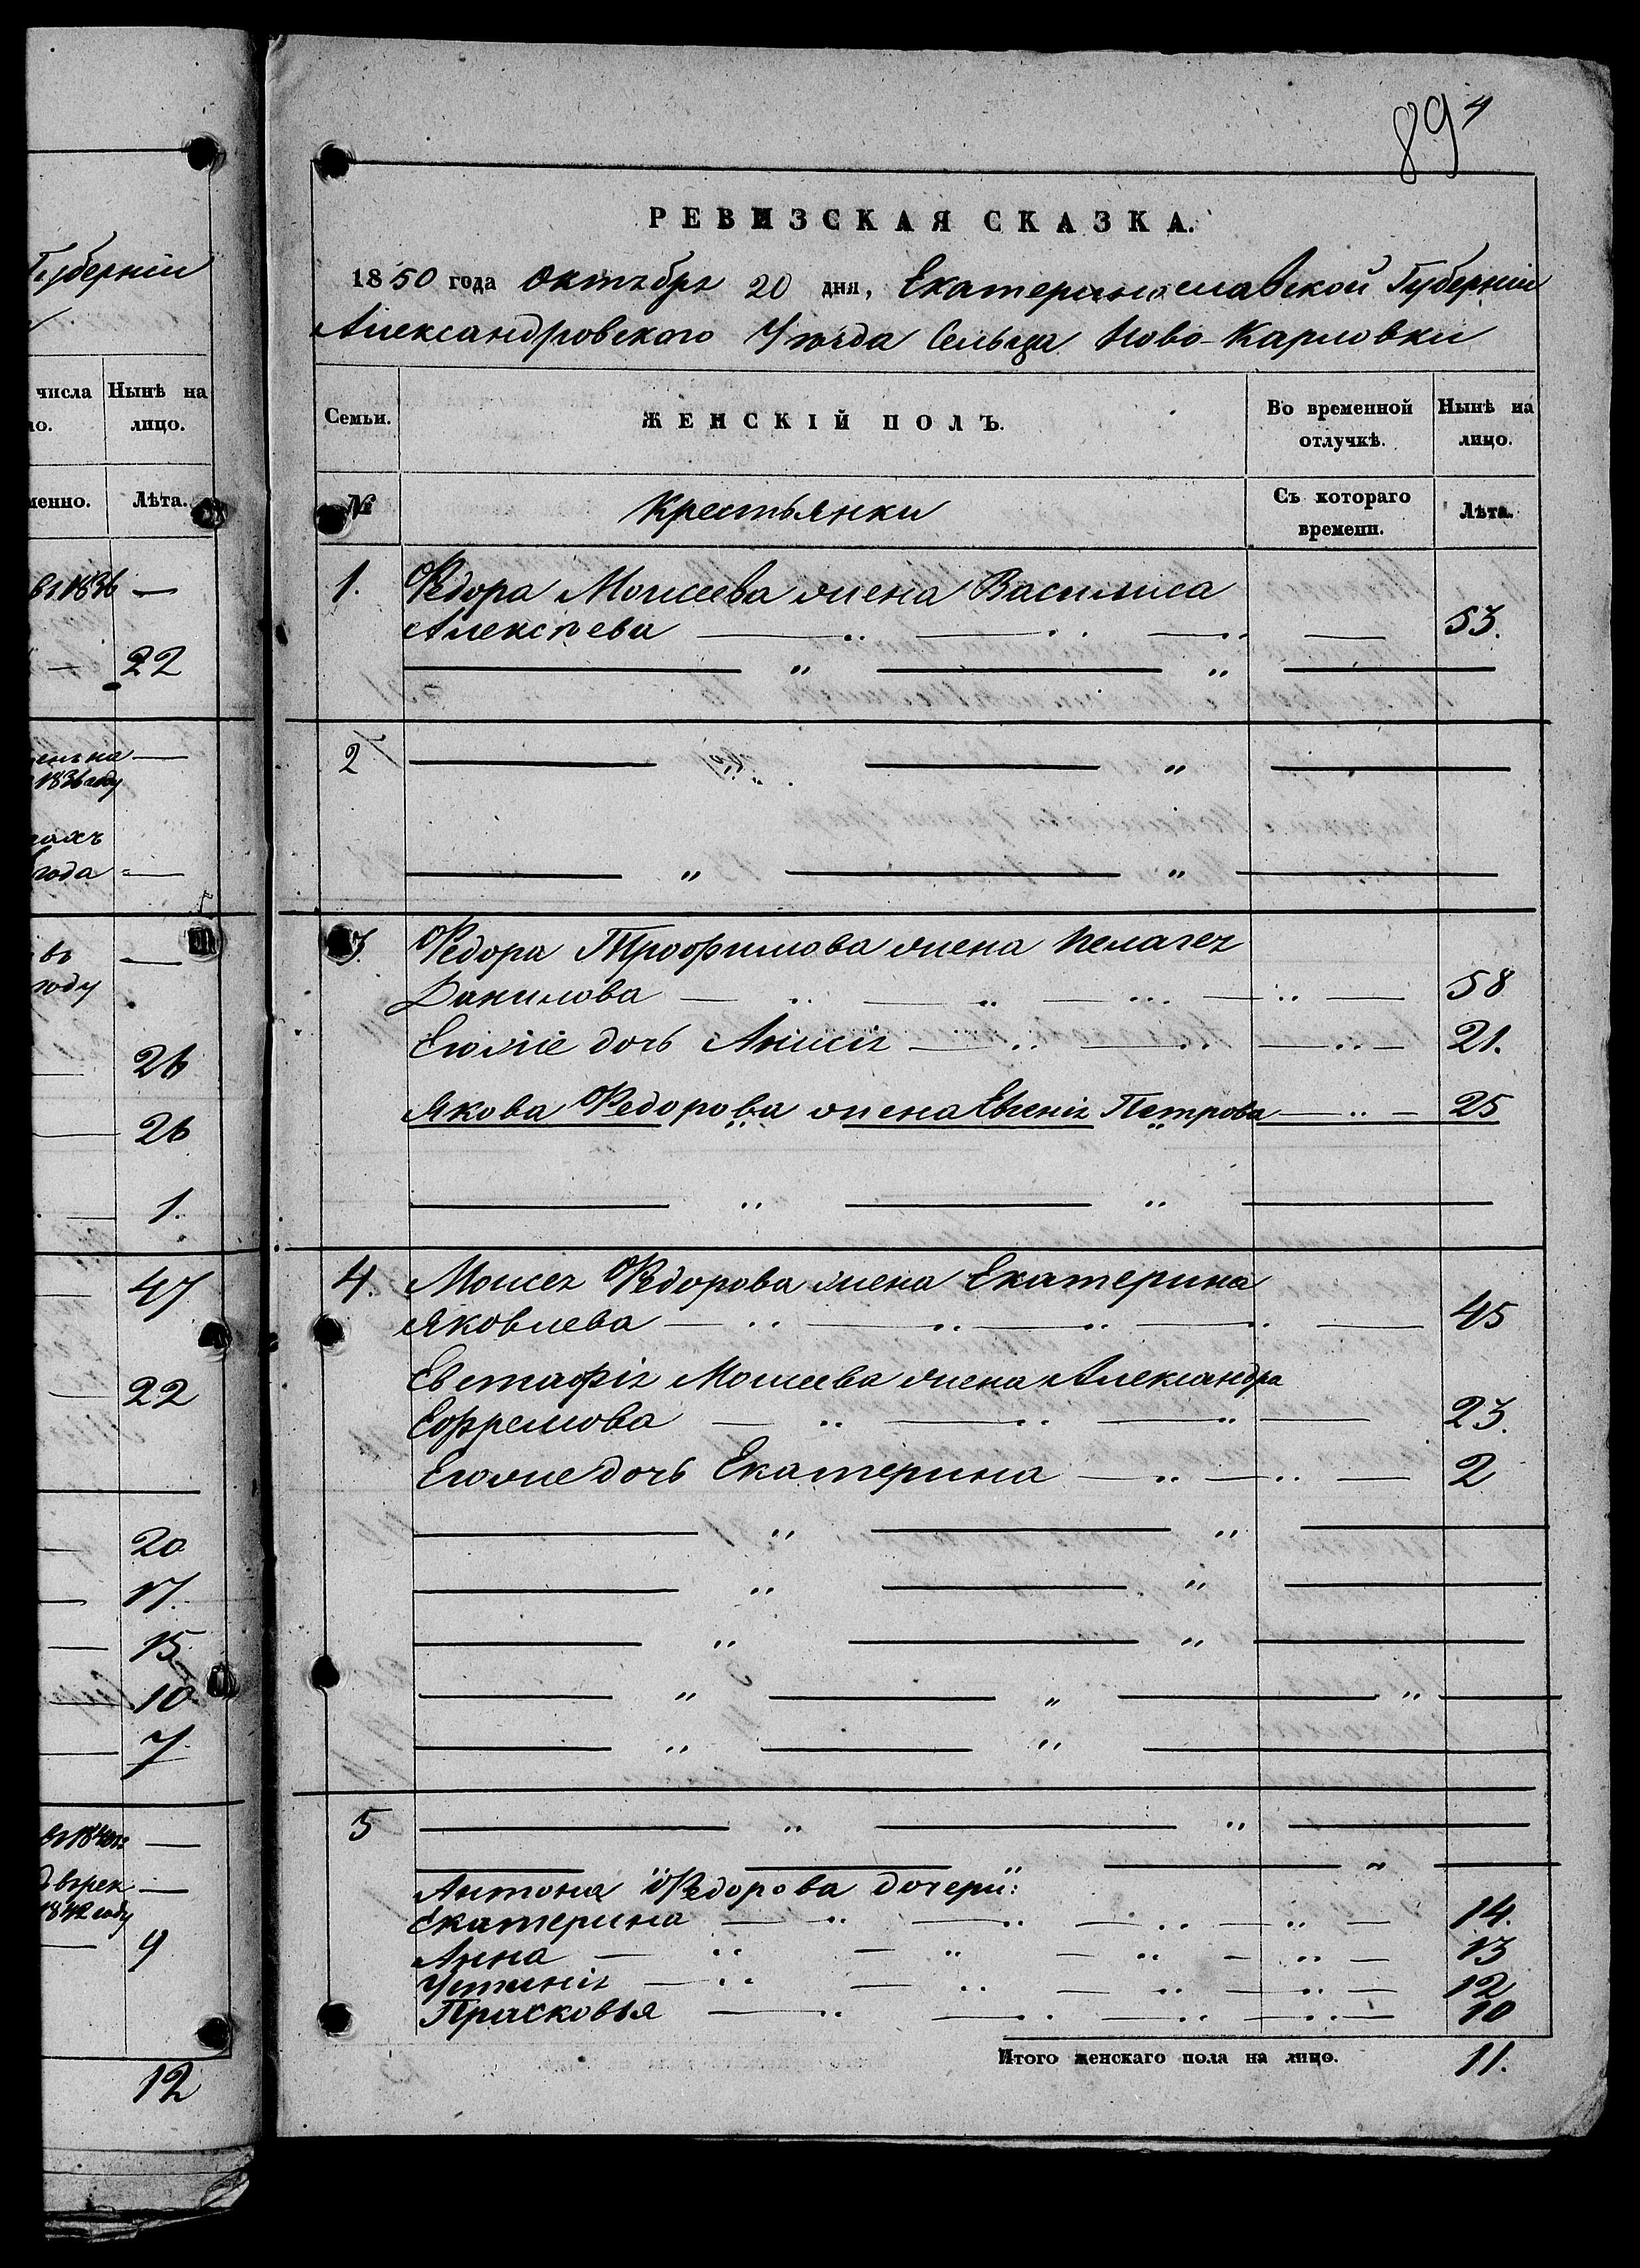 Губерніи
числа Нынѣ на
ло. лицо.
менно. Лѣта.
1836 —
— 22
1836 году
года —
въ —
году
26
26
1.
47
22
20
17.
15
10
7
—
1842 году
9
12
89 4
РЕВИЗСКАЯ СКАЗКА.
1850 года Октября 20 дня, Екатеринославской Губерніи
Александровского Уѣзда Сельца Ново-Карловки
Семьи. ЖЕНСКІЙ ПОЛЪ. Во временной отлучкѣ. Нынѣ на лицо.
№ Крестьянки Съ котораго времени. Лѣта.
1. Федора Моисеева жена Василиса
Алексѣева 53.
2
3. Федора Трофимова жена Пелагея
Данилова 58
Егожіе дочь Анисія 21.
Якова Федорова жена Евгенія Петрова 25
4. Моисея Федорова жена Екатерина
Яковлева 45
Евстафія Моисеева жена Александра
Ефремова 23.
Егожіе дочь Екатерина 2
5
Антона Федорова дочери:
Екатерина 14.
Анна 13
Устинія 12
Прасковья 10
Итого женскаго пола на лицо. 11.